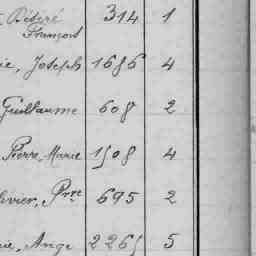 Désiré 314 1
Framont
ie, Joseph 1686 4
Guillaume 608 2
Pierre, Marie 1508 4
ivier, Prre 695 2
rie, Ange 2265 5